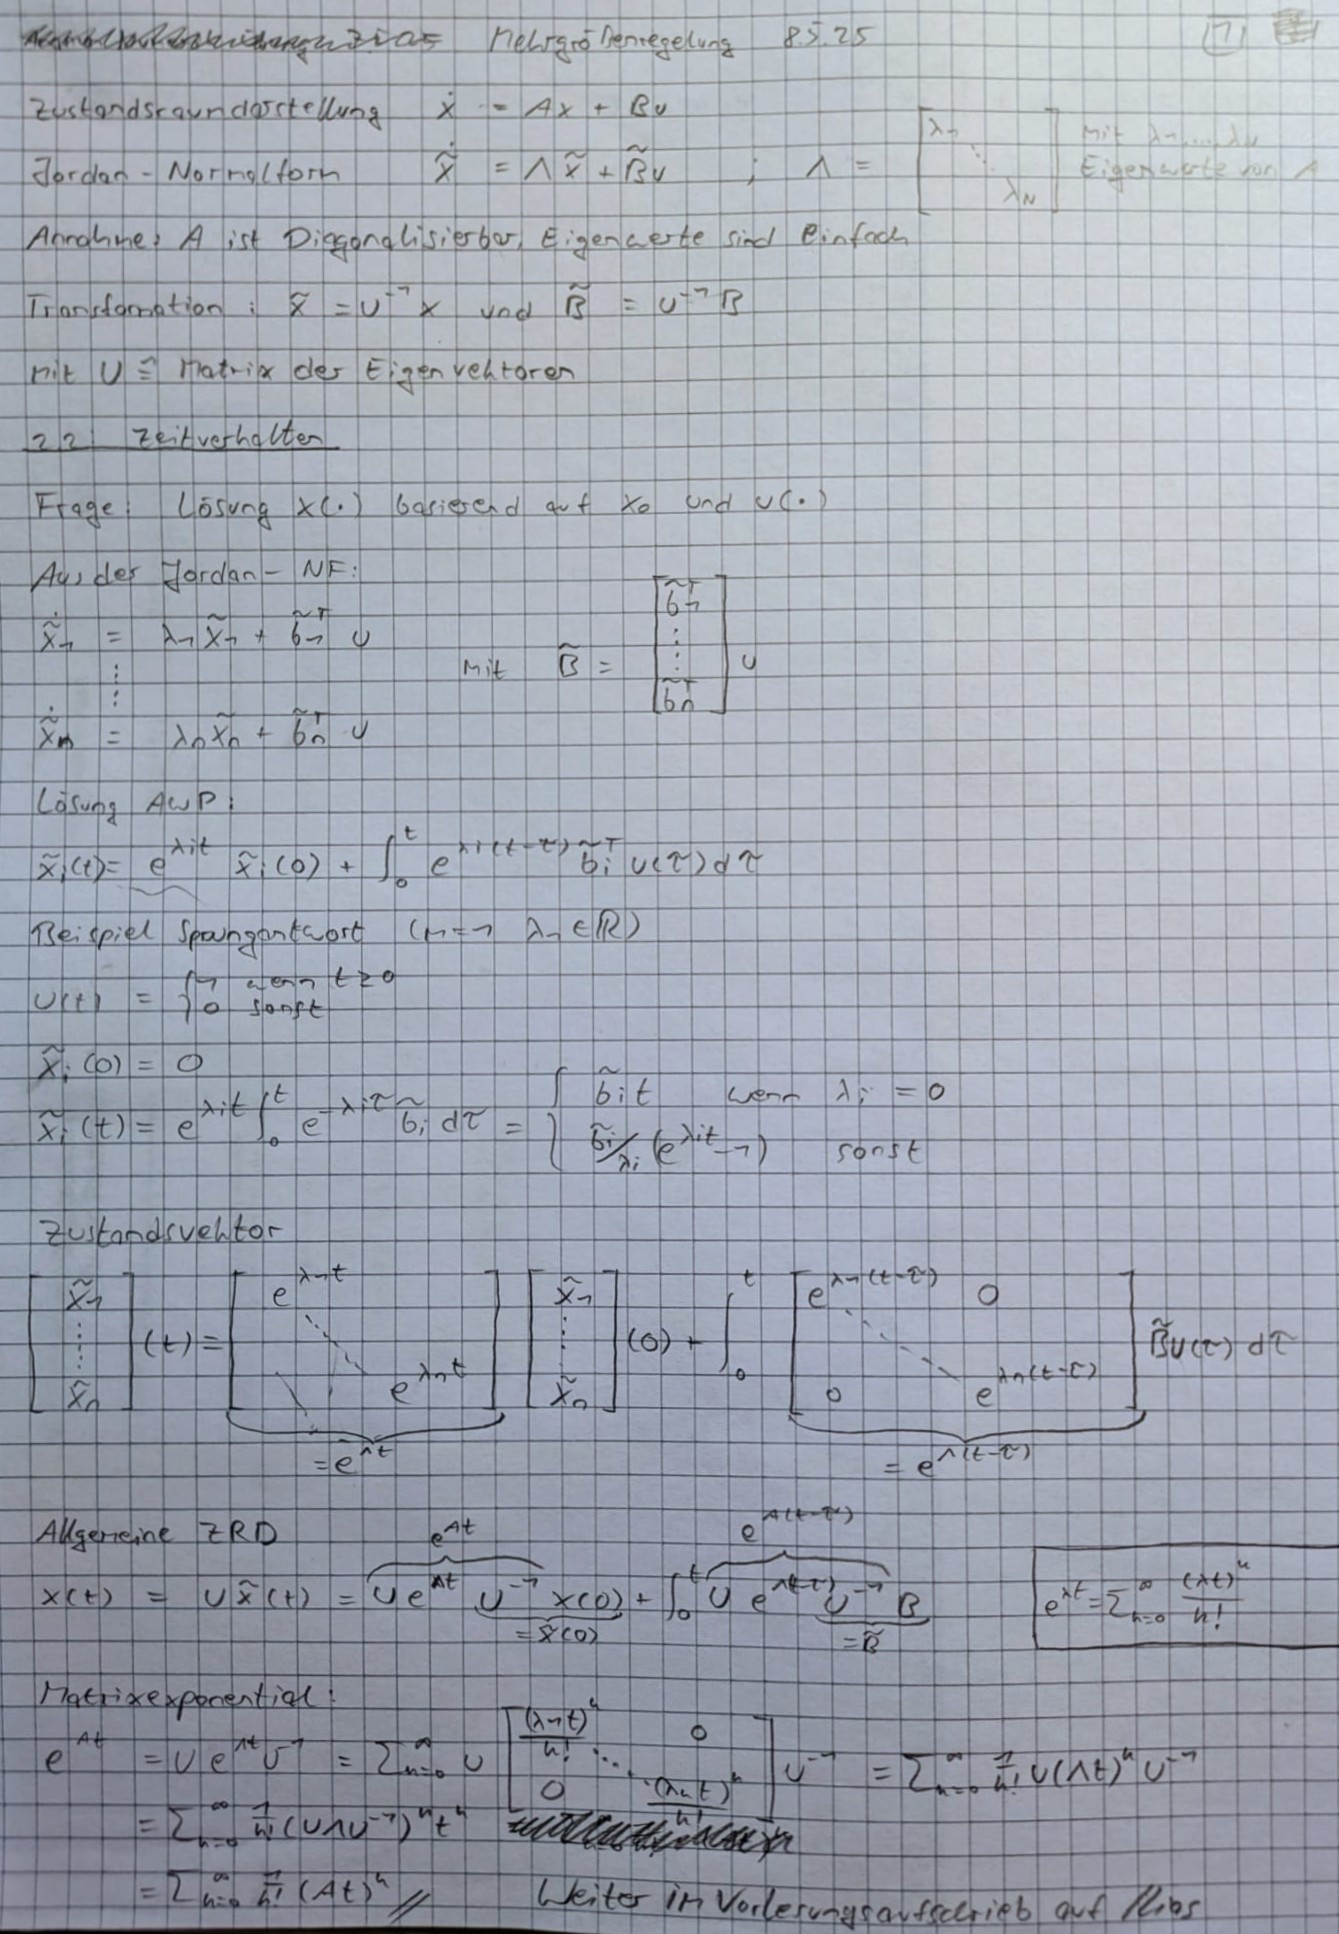 Mehrgrößenregelung 8.5.25 1
Zustandsraumdarstellung ẋ = Ax + Bu
Jordan-Normalform x̃̇ = Λx̃ + B̃u ; Λ = [λ₁ ⋱ λN] mit λ₁,...,λN Eigenwerte von A
Annahme: A ist Diagonalisierbar, Eigenwerte sind einfach
Transfomation: x̃ = U⁻¹x und B̃ = U⁻¹B
mit U ≙ Matrix der Eigenvektoren
2.2 Zeitverhalten
Frage: Lösung x(·) basierend auf x₀ und u(·)
Aus der Jordan-NF:
x̃̇₁ = λ₁x̃₁ + b̃₁ᵀ u
⋮ mit B̃ = [b̃₁ᵀ ⋮ b̃ₙᵀ] u
x̃̇ₙ = λₙx̃ₙ + b̃ₙᵀ u
Lösung AWP:
x̃ᵢ(t) = e^{λᵢt} x̃ᵢ(0) + ∫₀ᵗ e^{λᵢ(t-τ)} b̃ᵢᵀ u(τ) dτ
Beispiel Sprungantwort (m=1 λ₁ ∈ ℝ)
u(t) = { 1 wenn t ≥ 0
0 sonst
x̃ᵢ(0) = 0
x̃ᵢ(t) = e^{λᵢt} ∫₀ᵗ e^{-λᵢτ} b̃ᵢ dτ = { b̃ᵢt wenn λᵢ = 0
b̃ᵢ/λᵢ (e^{λᵢt}-1) sonst
Zustandsvektor
[x̃₁ ⋮ x̃ₙ] (t) = [e^{λ₁t} ⋱ e^{λₙt}] [x̃₁ ⋮ x̃ₙ] (0) + ∫₀ᵗ [e^{λ₁(t-τ)} 0 ⋱ 0 e^{λₙ(t-τ)}] B̃u(τ) dτ
= e^{Λt} = e^{Λ(t-τ)}
Allgemeine ZRD e^{At} e^{A(t-τ)}
x(t) = Ux̃(t) = U e^{Λt} U⁻¹ x(0) + ∫₀ᵗ U e^{Λ(t-τ)} U⁻¹ B
= x̃(0) = B̃
e^{λt} = Σ_{k=0}^∞ (λt)^k / k!
Matrixexponential:
e^{At} = U e^{Λt} U⁻¹ = Σ_{k=0}^∞ U [(λ₁t)^k/k! 0 ⋱ 0 (λₙt)^k/k!] U⁻¹ = Σ_{k=0}^∞ 1/k! U(Λt)^k U⁻¹
= Σ_{k=0}^∞ 1/k! (UΛU⁻¹)^k t^k
= Σ_{k=0}^∞ 1/k! (At)^k //
Weiter im Vorlesungsaufschrieb auf Ilias